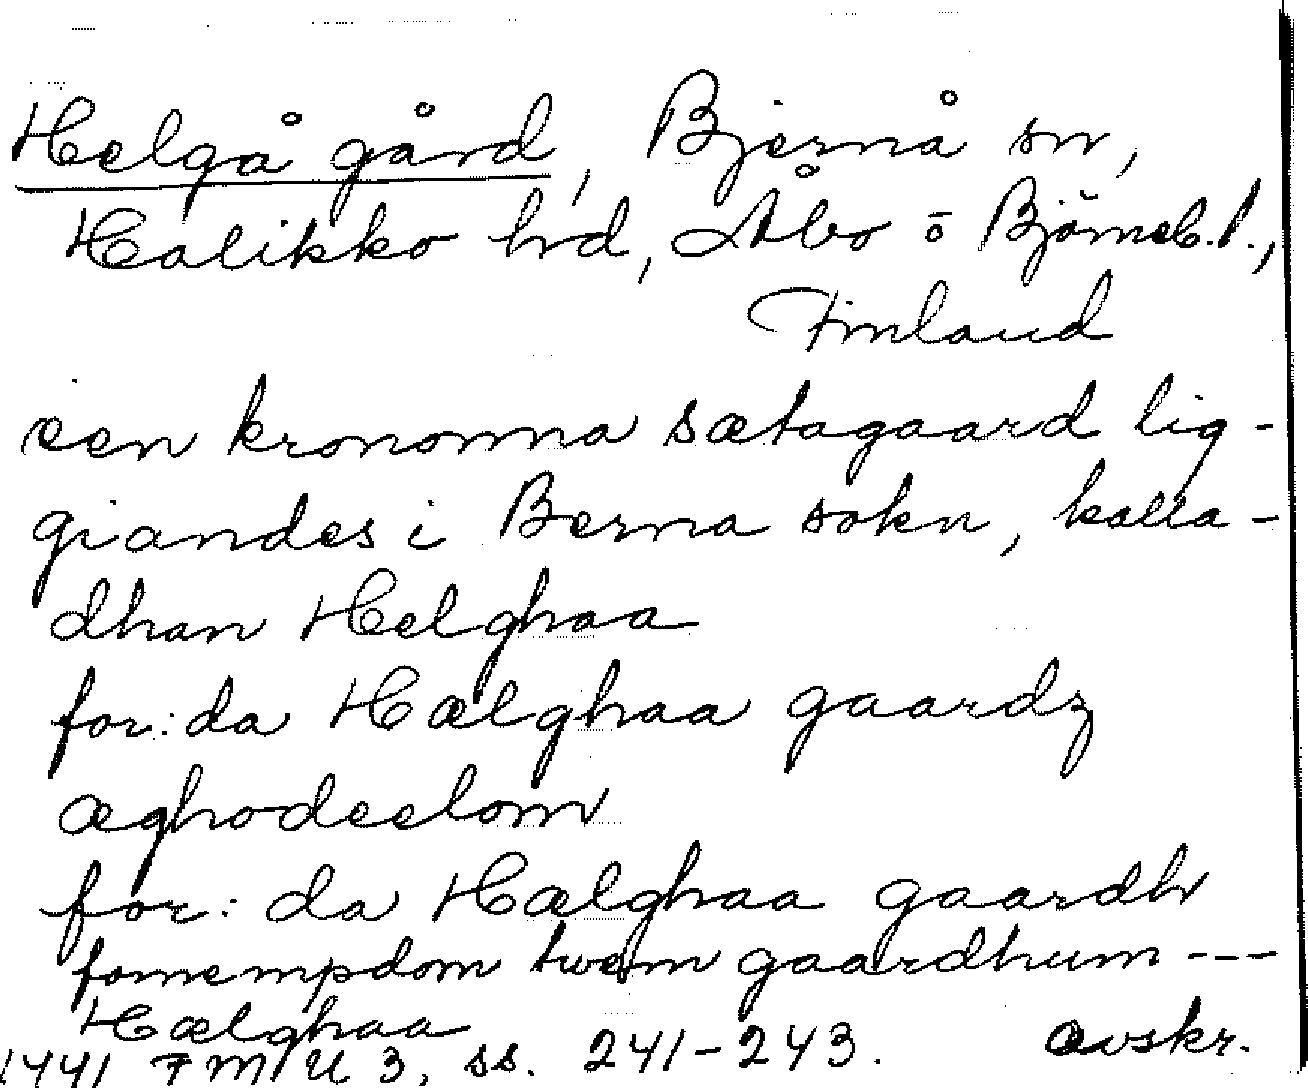 Helgå gård, Bjernå sn,
Halikko hrd, Åbo o Björneb. l.,
Finland
een krononna sætagaard lig-
giandes i Berna sokn, kalla-
dhan Helghaa
for: da Hælghaa gaardz
æghodeelom
for: da Hælghaa gaardh
fornempdom twem gaardhum ---
Hælghaa
1441 FMU 3, ss. 241-243. avskr.